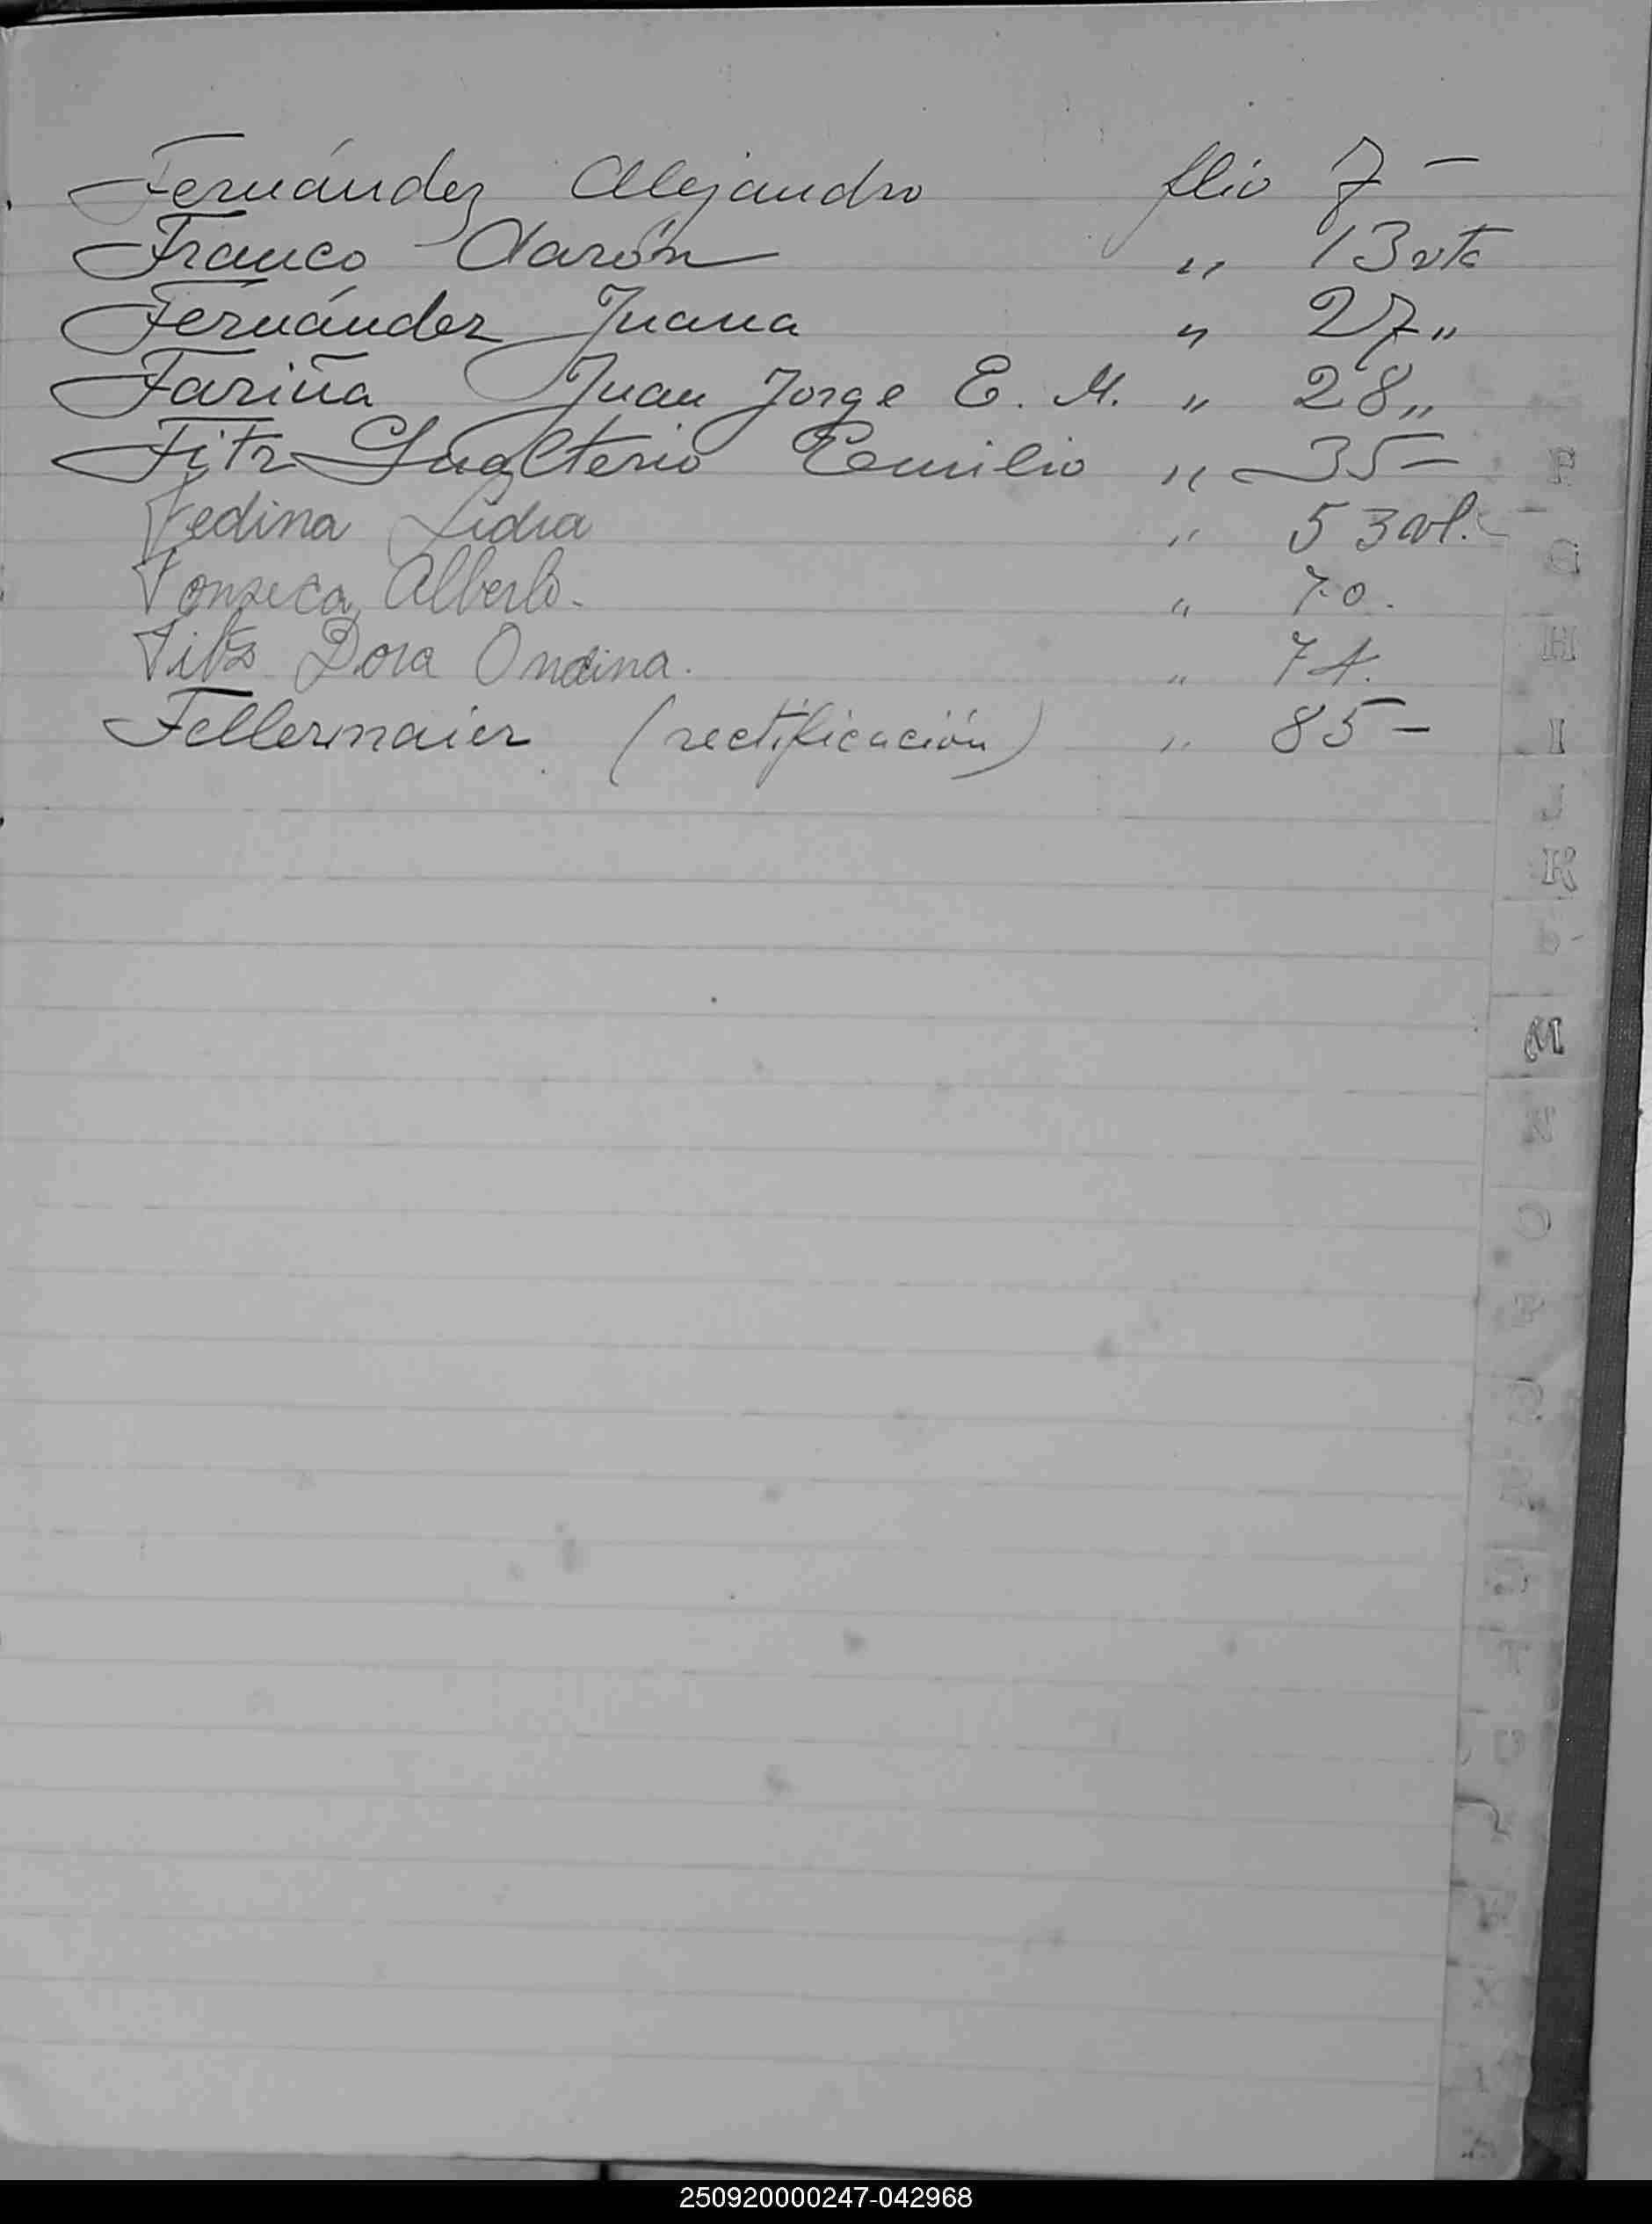 Fernández Alejandro flio 7 —
Franco Aarón " 13 vta
Fernández Juana " 27 "
Fariña Juan Jorge E. M. " 28 "
Fitz Gualterio Emilio " 35 —
Fedina Lidia " 53 vt.
Fonseca, Alberto. " 70.
Fitz Dora Ondina. " 74.
Fellermaier (rectificación) " 85 —
F
G
H
I
J
K
M
N
O
P
Q
R
S
T
U
X
250920000247-042968